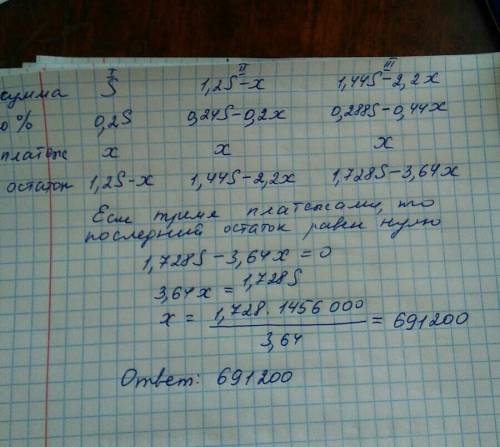 I II III
сумма S 1,2S-x 1,44S-2,2x
% 0,2S 0,24S-0,2x 0,288S-0,44x
платёж x x x
остаток 1,2S-x 1,44S-2,2x 1,728S-3,64x
Если тремя платежами, то
последний остаток равен нулю
1,728S-3,64x=0
3,64x=1,728S
x = 1,728·1456000 / 3,64 = 691200
Ответ: 691200